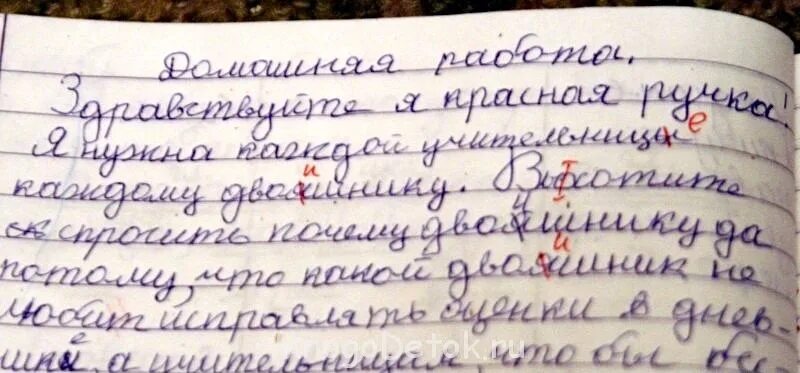 Домашная работа.
Здравствуйте я красная ручка!
Я нужна каждой учительницые
каждому двоишнику. Вы хотите
спросить почему двоишнику да
потому, что какой двоишник не
любит исправлять оценки в днев-
нике, а учительницам, что бы